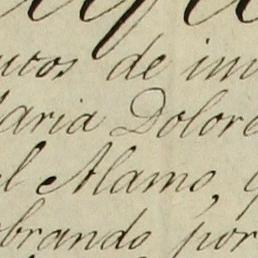 utos de im
Maria Dolore
el Alamo, q
obrando por